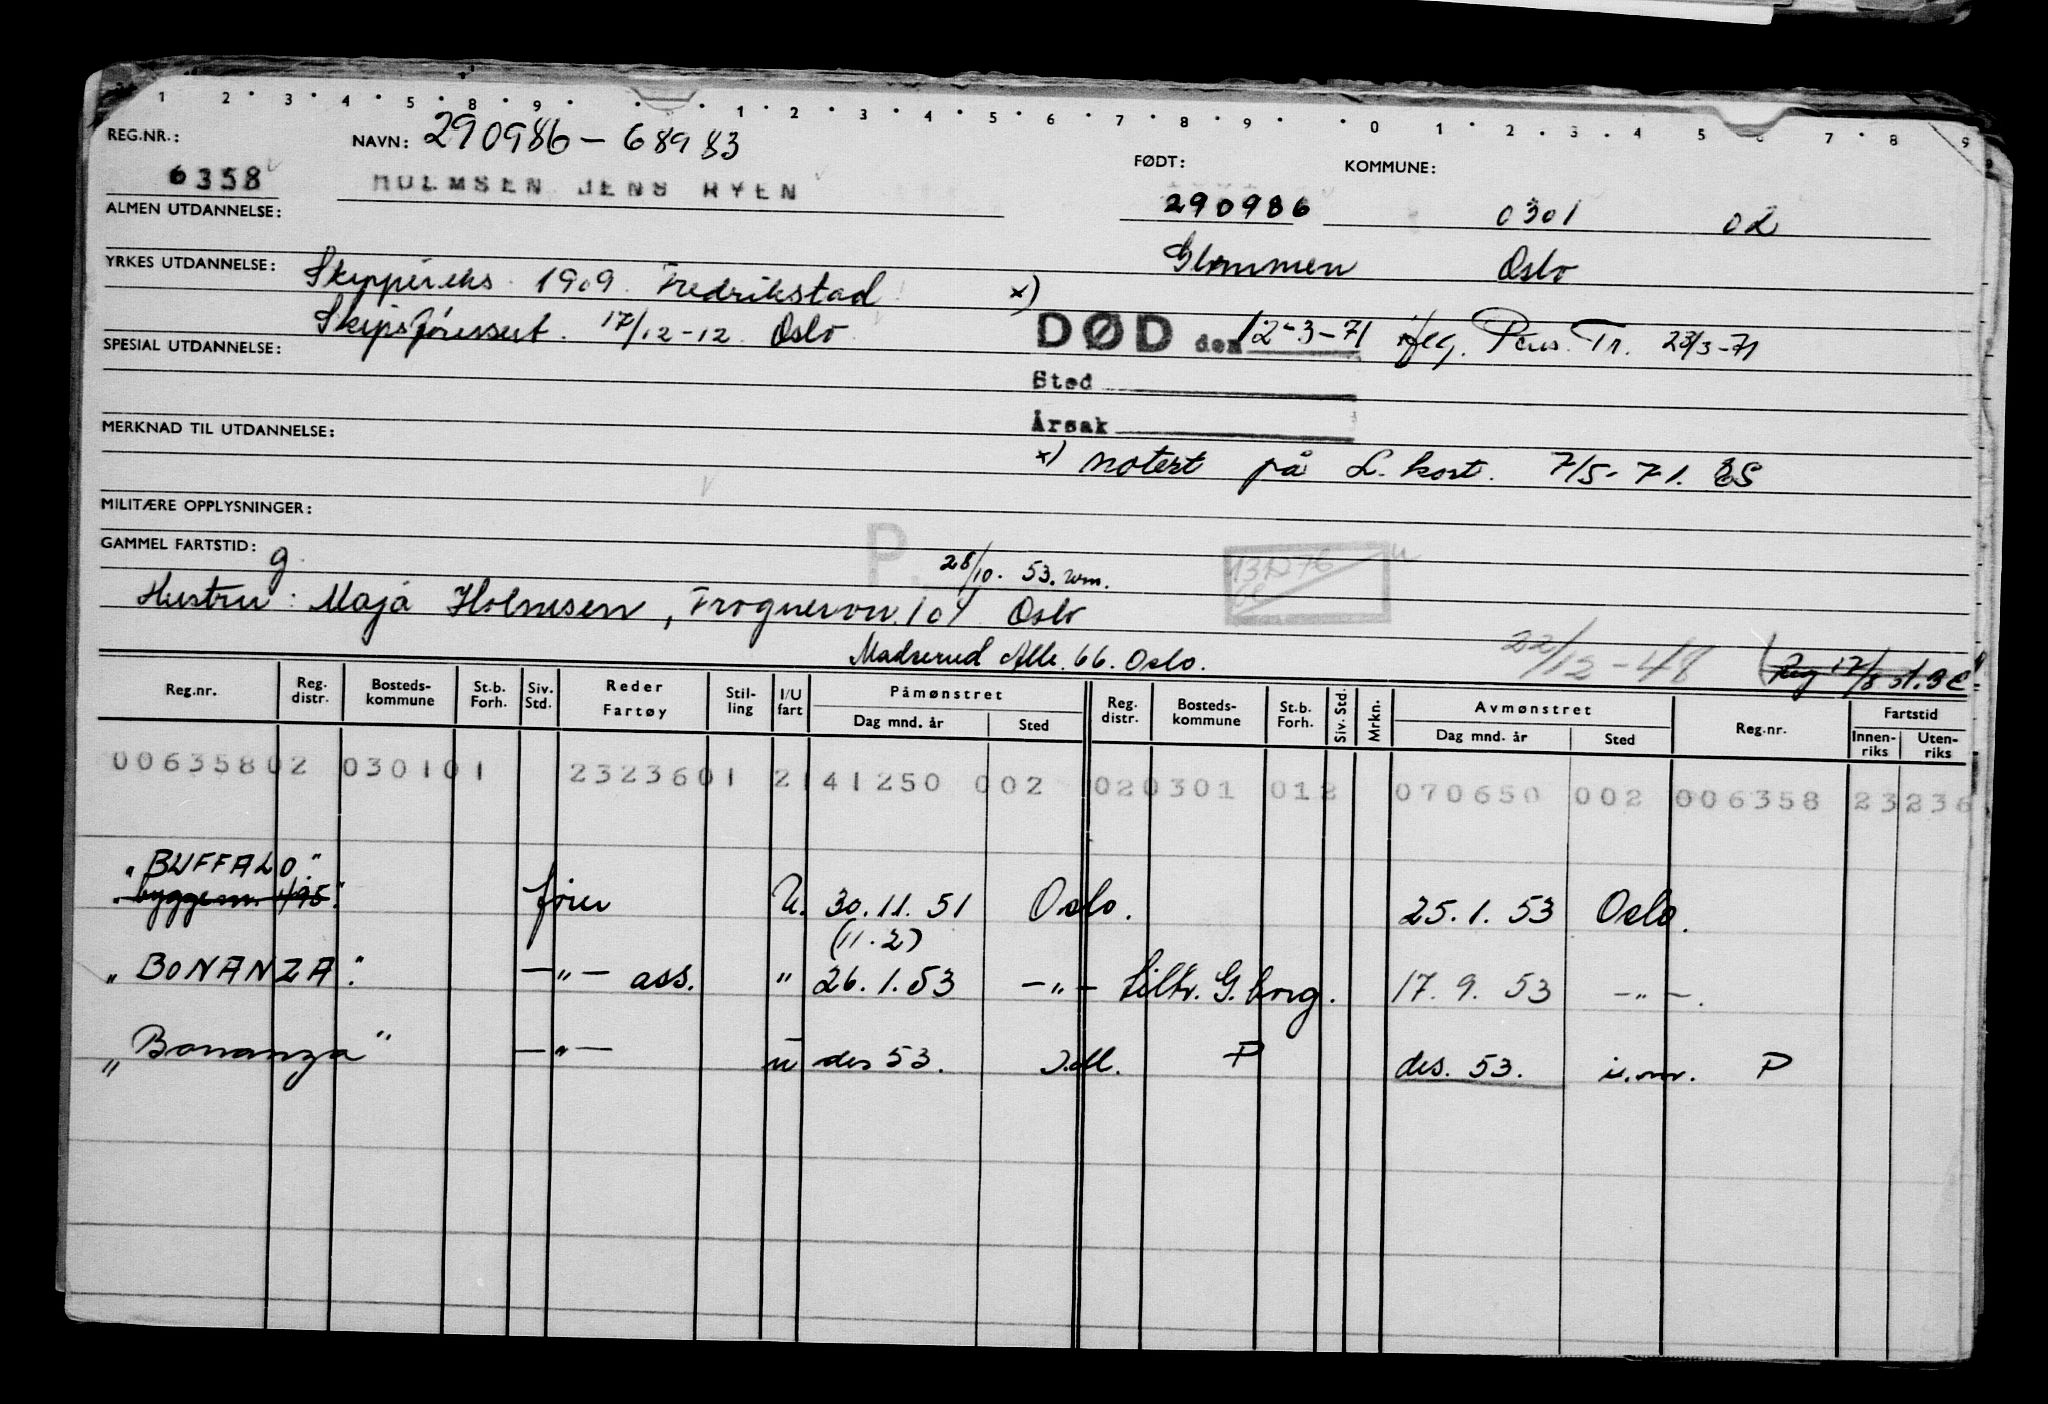 1 2 3 4 5 8 9 1 2 3 4 5 6 7 8 9 0 1 2 3 4 5 6 7 8 9
REG.NR.: NAVN: 290986-68983 FØDT: KOMMUNE:
6358 HOLMSEN JENS RYEN 290986 0301 02
ALMEN UTDANNELSE: Glommen Oslo
YRKES UTDANNELSE: Skippereks. 1909. Fredrikstad x)
Skipsførersert. 17/12-12. Oslo. DØD den 12-3-71 Pens. Tr. 23/3-71
SPESIAL UTDANNELSE: Sted
Årsak
MERKNAD TIL UTDANNELSE: x) notert på L. kort. 7/5-71. ES
MILITÆRE OPPLYSNINGER: P.
GAMMEL FARTSTID: g. 28/10. 53. wm. 13
Hustru: Maja Holmsen, Frognervn. 104 Oslo
Madserud Alle. 66. Oslo. 22/12-48
Reg.nr. Reg. distr. Bosteds-kommune St.b. Forh. Siv. Std. Reder Fartøy Stil-ling I/U fart Påmønstret Dag mnd. år Sted Reg. distr. Bosteds-kommune St.b. Forh. Siv. Std. Mrkn. Avmønstret Dag mnd. år Sted Reg.nr. Fartstid Innen-riks Uten-riks
00635802 030101 2323601 2141250 002 020301 012 070650 002 006358 23236
"BUFFALO"
"byggenr. 495." fører U. 30.11.51 Oslo. 25.1.53 Oslo.
(11.2)
"BONANZA". —"— ass. " 26.1.53 —"— tiltr. G.borg. 17.9.53 —"—.
"Bonanza" —"— u des 53. P des. 53. u.m. P